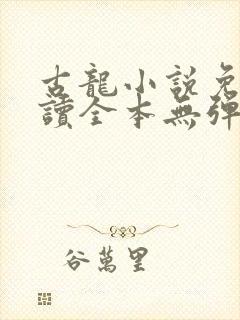 古龍小說免
讀全本無彈
谷萬里